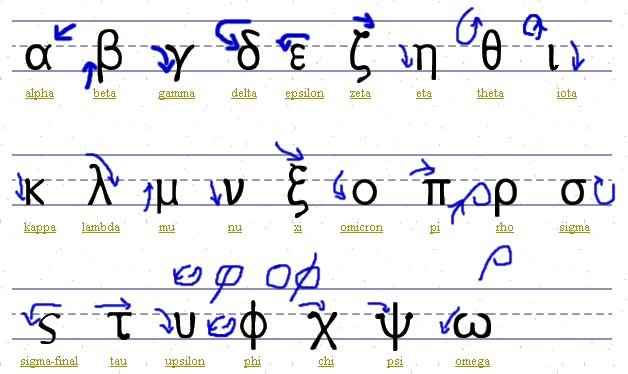 α β γ δ ε ζ η θ ι
alpha beta gamma delta epsilon zeta eta theta iota
κ λ μ ν ξ ο π ρ σ
kappa lambda mu nu xi omicron pi rho sigma
φ ϕ ρ
ς τ υ ϕ χ ψ ω
sigma-final tau upsilon phi chi psi omega